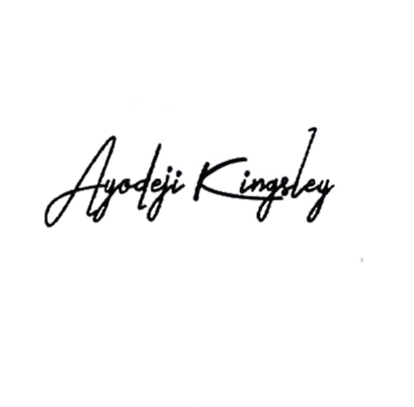 Ayodeji Kingsley